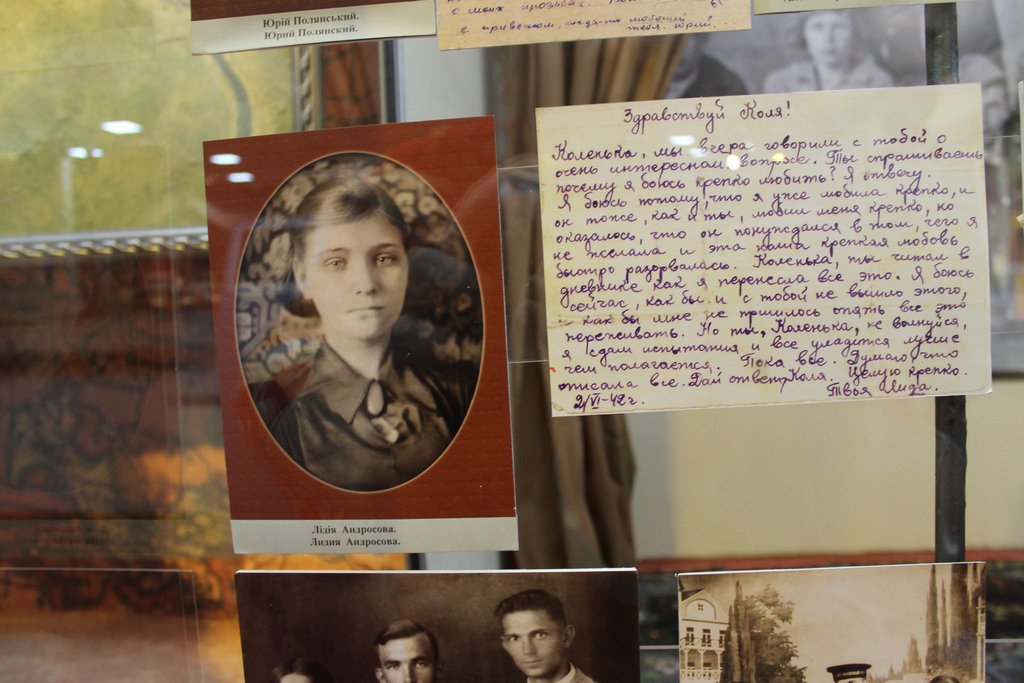 Юрій Полянський.
Юрий Полянский.
о моих просьбах.
с приветом, когда-то любивший
тебя Юрий.
Здравствуй Коля!
Коленька, мы вчера говорили с тобой о
очень интересном вопросе. Ты спрашиваешь
почему я боюсь крепко любить? Я отвечу.
Я боюсь потому, что я уже любила крепко, и
он тоже, как и ты, любил меня крепко, но
оказалось, что он понуждался в том, чего я
не желала и эта наша крепкая любовь
быстро разорвалась. Коленька, ты читал в
дневнике как я перенесла все это. Я боюсь
сейчас, как бы и с тобой не вышло этого,
и как бы мне не пришлось опять все это
переживать. Но ты, Коленька, не волнуйся,
я сдам испытания и все уладится лучше
чем полагается. Пока все. Думаю, что
описала все. Дай ответ Коля. Целую крепко.
2/VI-42 г. Твоя Лида.
Лідія Андросова.
Лидия Андросова.